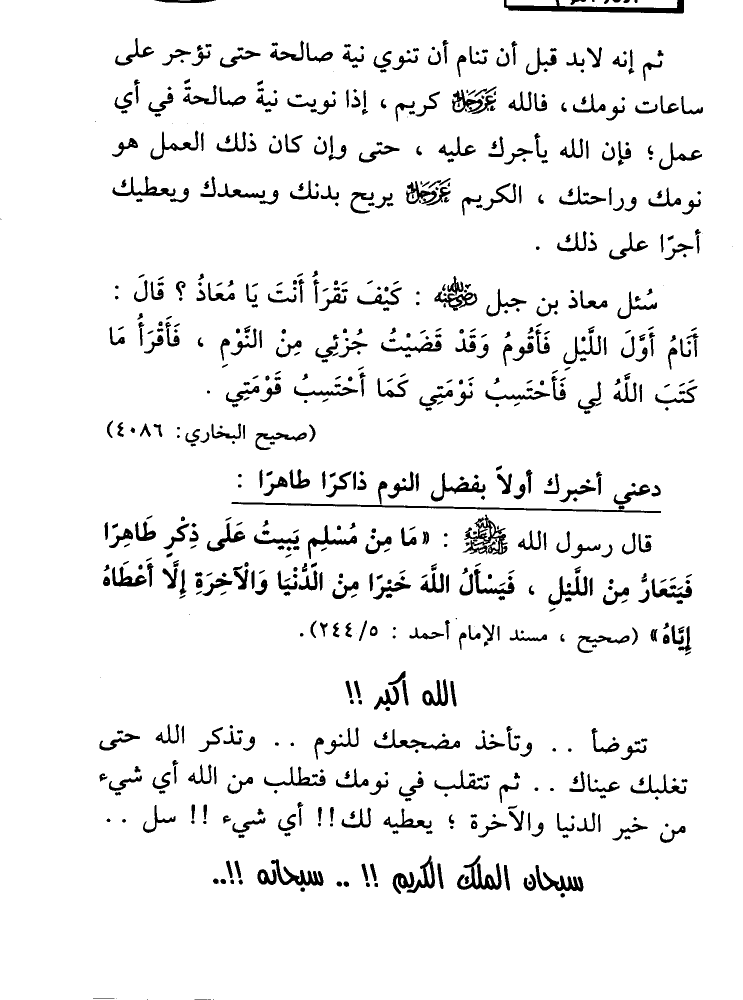 ثم إنه لابد قبل أن تنام أن تنوي نية صالحة حتى تؤجر على
ساعات نومك، فالله عَزَّوَجَلَّ كريم، إذا نويت نيةً صالحةً في أي
عمل؛ فإن الله يأجرك عليه ، حتى وإن كان ذلك العمل هو
نومك وراحتك ، الكريم عَزَّوَجَلَّ يريح بدنك ويسعدك ويعطيك
أجرًا على ذلك .
سُئل معاذ بن جبل رضي الله عنه : كَيْفَ تَقْرَأُ أَنْتَ يَا مُعَاذُ ؟ قَالَ :
أَنَامُ أَوَّلَ اللَّيْلِ فَأَقُومُ وَقَدْ قَضَيْتُ جُزْئِي مِنْ النَّوْمِ ، فَأَقْرَأُ مَا
كَتَبَ اللَّهُ لِي فَأَحْتَسِبُ نَوْمَتِي كَمَا أَحْتَسِبُ قَوْمَتِي .
(صحيح البخاري: ٤٠٨٦)
دعني أخبرك أولاً بفضل النوم ذاكرًا طاهرًا :
قال رسول الله صلى الله عليه وسلم : «مَا مِنْ مُسْلِمٍ يَبِيتُ عَلَى ذِكْرٍ طَاهِرًا
فَيَتَعَارُّ مِنْ اللَّيْلِ ، فَيَسْأَلُ اللَّهَ خَيْرًا مِنْ الدُّنْيَا وَالْآخِرَةِ إِلَّا أَعْطَاهُ
إِيَّاهُ» (صحيح ، مسند الإمام أحمد : ٢٤٤/٥).
الله أكبر !!
تتوضأ .. وتأخذ مضجعك للنوم .. وتذكر الله حتى
تغلبك عيناك .. ثم تتقلب في نومك فتطلب من الله أي شيء
من خير الدنيا والآخرة ؛ يعطيه لك!! أي شيء !! سل ..
سبحان الملك الكريم !! .. سبحانه !!..